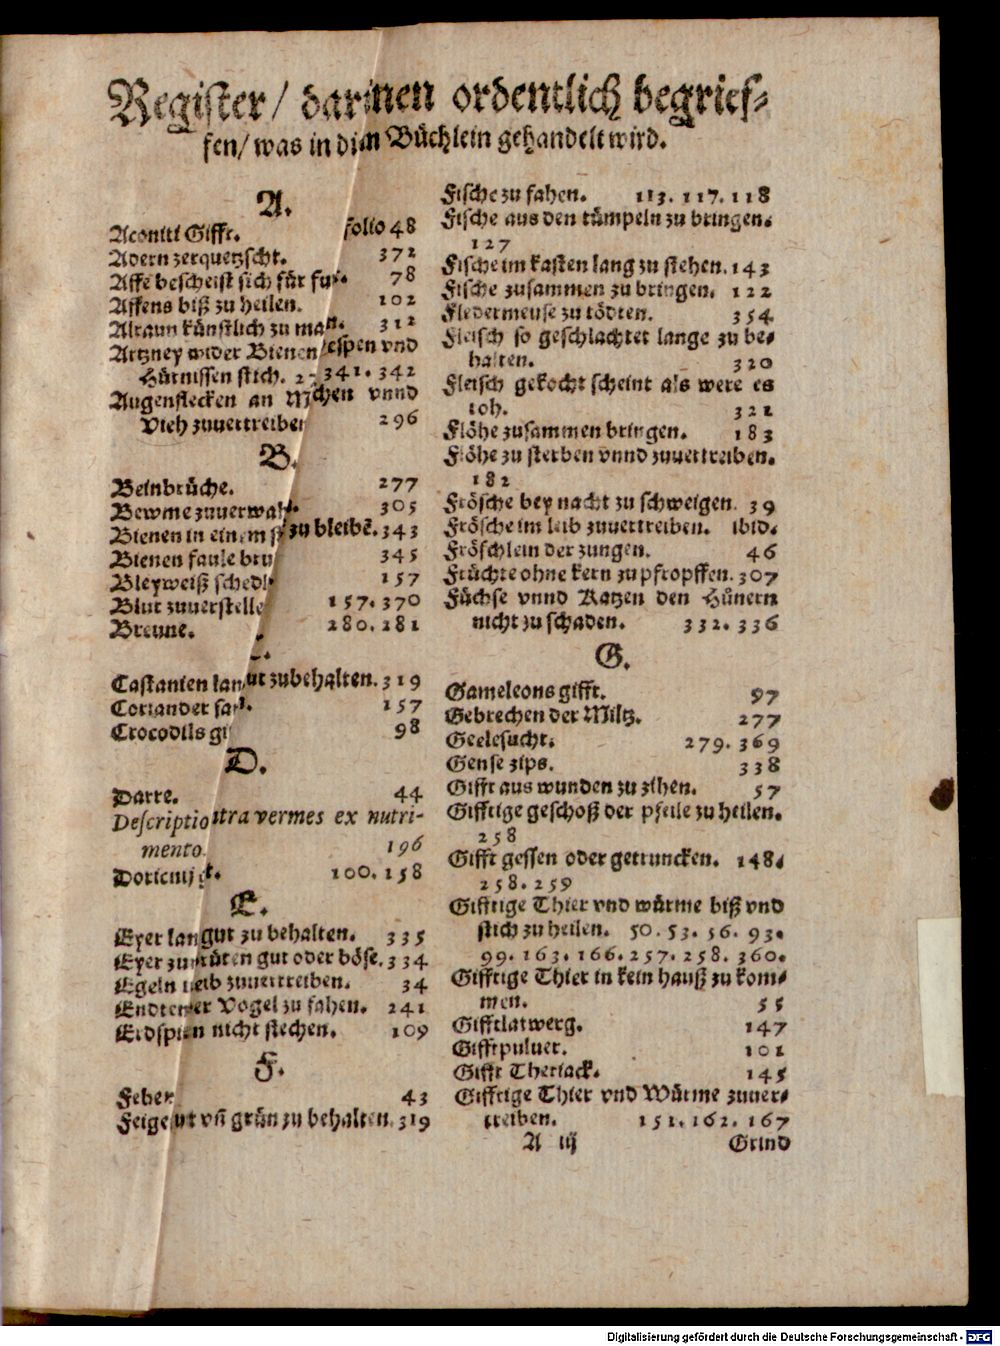 Register/ darinnen ordentlich begrief-
fen/ was in di Büchlein gehandelt wird.
A.
Aconiti Gifft. folio 48
Adern zerquetzscht. 372
Affe bescheist sich für 78
Affens biß zu heilen. 102
Alraun künstlich zu 312
Artzney wider Bienen/ espen vnd
Hürnissen stich. 341. 342
Augenflecken an vnnd
Vieh zuuertreiben 296
B.
Beinbrüche. 277
Bewme zuuerwa 305
Bienen in einem zu bleibē. 343
Bienen faule bru 345
Bleyweiß schedl 157
Blut zuuerstelle 157. 370
Breune. 280. 281
Castanien lan ut zubehalten. 319
Coriander sa 157
Crocodils gi 98
D.
Darre. 44
Descriptio tra vermes ex nutri-
mento. 196
Doricnij g. 100. 158
E.
Eyer lan gut zu behalten. 335
Eyer zu rüten gut oder böse. 334
Egeln eib zuuertreiben. 34
Endten er Vogel zu fahen. 241
Erdspi n nicht stechen. 109
F.
Feber 43
Feige ut vñ grün zu behalten. 319
Fische zu fahen. 113. 117. 118
Fische aus den tümpeln zu bringen.
127
Fische im kasten lang zu stehen. 143
Fische zusammen zu bringen. 122
Fledermeuse zu tödten. 354
Fleisch so geschlachtet lange zu be-
halten. 320
Fleisch gekocht scheint als were es
roh. 321
Flöhe zusammen bringen. 183
Flöhe zu sterben vnnd zuuertreiben.
182
Frösche bey nacht zu schweigen. 39
Frösche im leib zuuertreiben. ibid.
Fröschlein der zungen. 46
Früchte ohne kern zu pfropffen. 307
Füchse vnnd Katzen den Hünern
nicht zu schaden. 332. 336
G.
Gameleons gifft. 97
Gebrechen der Miltz. 277
Geelesucht. 279. 369
Gense zips. 338
Gifft aus wunden zu zihen. 57
Gifftige geschoß der pfeile zu heilen.
258
Gifft gessen oder getruncken. 148.
258. 259
Gifftige Thier vnd würme biß vnd
stich zu heilen. 50. 53. 56. 93.
99. 163. 166. 257. 258. 360.
Gifftige Thier in kein hauß zu kom-
men. 55
Gifftlatwerg. 147
Gifftpuluer. 101
Gifft Theriack. 145
Gifftige Thier vnd Würme zuuer-
treiben. 151. 162. 167
A iij Grind
Digitalisierung gefördert durch die Deutsche Forschungsgemeinschaft - DFG